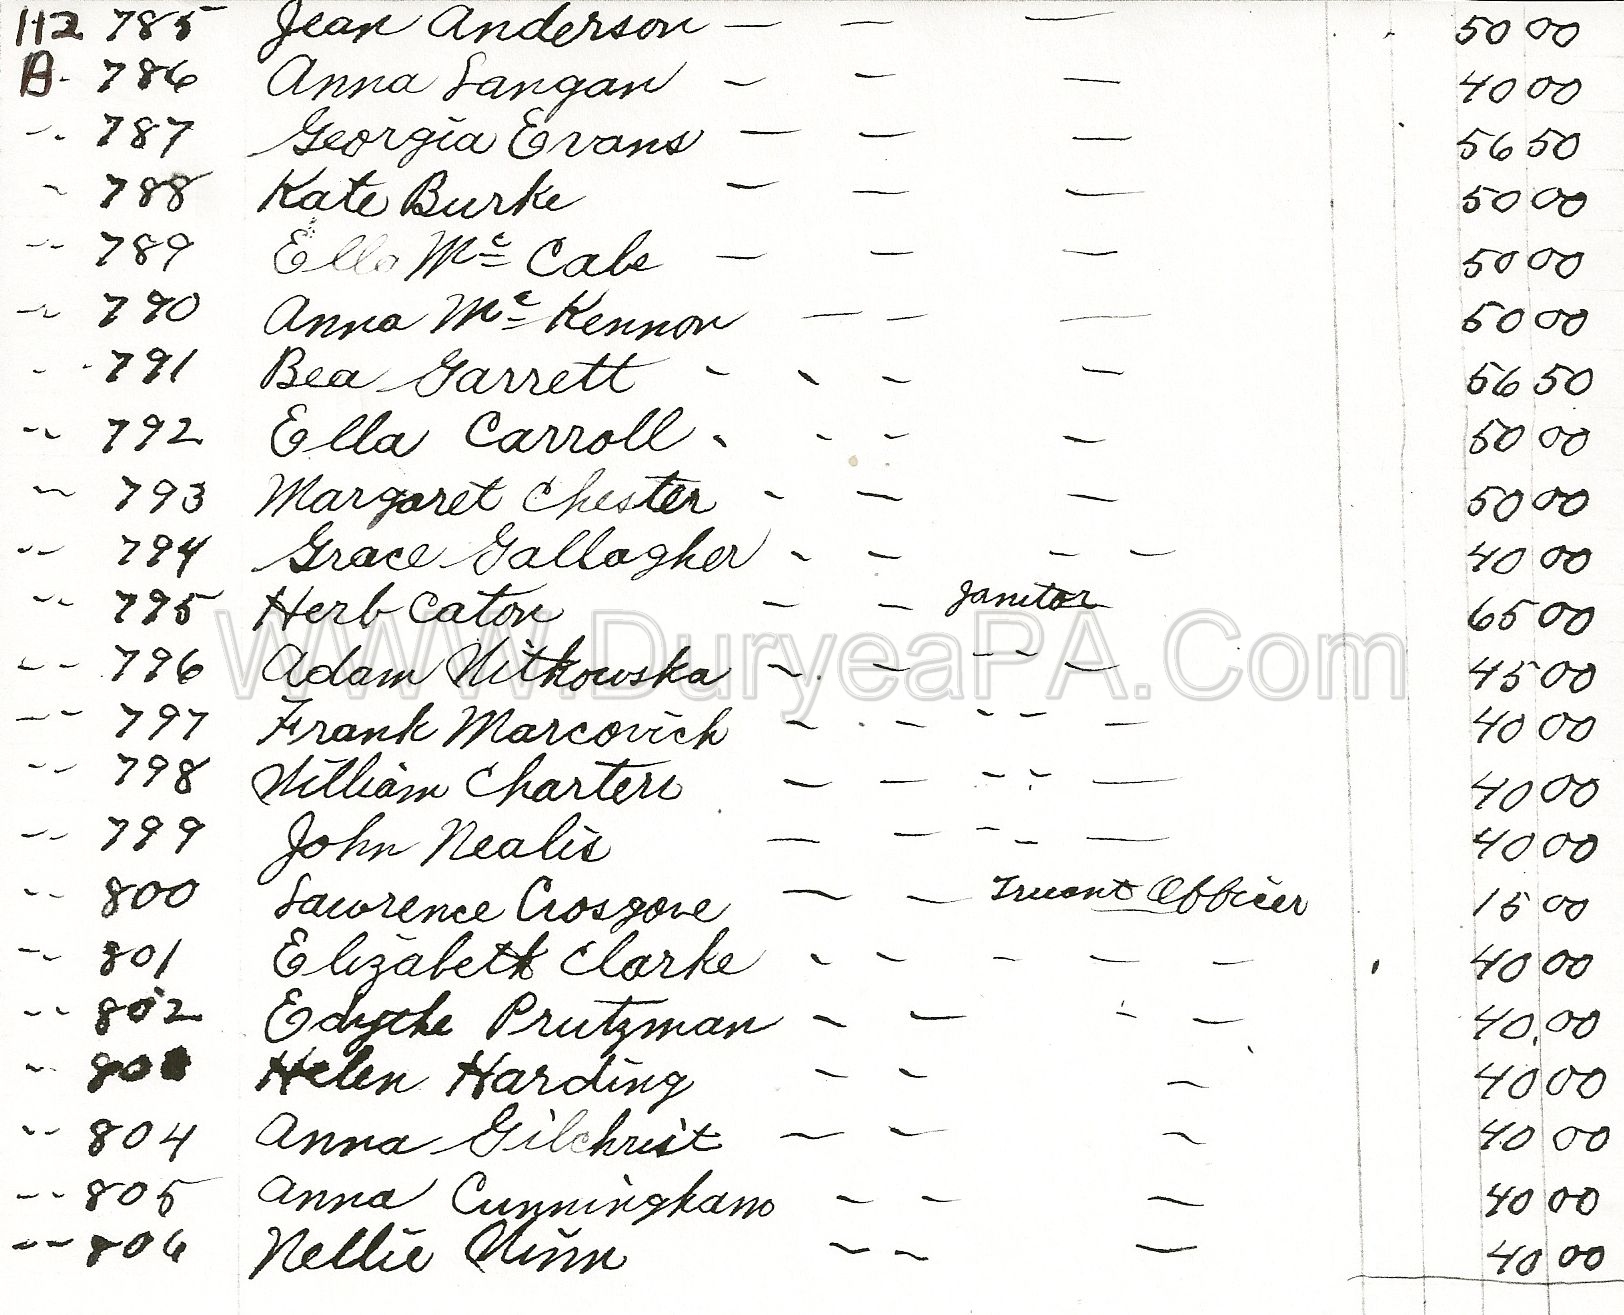 112 785 Jean Anderson — — — 50 00
B. 786 Anna Langan — — — 40 00
" 787 Georgia Evans — — — 56 50
" 788 Kate Burke — — — 50 00
" 789 Ella Mc Cabe — — — 50 00
" 790 Anna Mc Kennon — — — 50 00
" 791 Bea Garrett - - - — 56 50
" 792 Ella Carroll - - - — 50 00
" 793 Margaret Chester - — — 50 00
" 794 Grace Gallagher - - - — 40 00
" 795 Herb Caton - - Janitor 65 00
" 796 Adam Witkowska - - " — 45 00
" 797 Frank Marcovich - - " — 40 00
" 798 William Charteri — - " — 40 00
" 799 John Nealis — - " — 40 00
" 800 Lawrence Crosgove — - Truant Officer 15 00
" 801 Elizabeth Clarke - - - - — 40 00
" 802 Edythe Prutzman - — - — 40.00
" Helen Harding - - - 40 00
" 804 Anna Gilchrist — - - 40 00
" 805 Anna Cunningham - - — 40 00
" 806 Nellie Winn - - — 40 00
WWW.DuryeaPA.Com